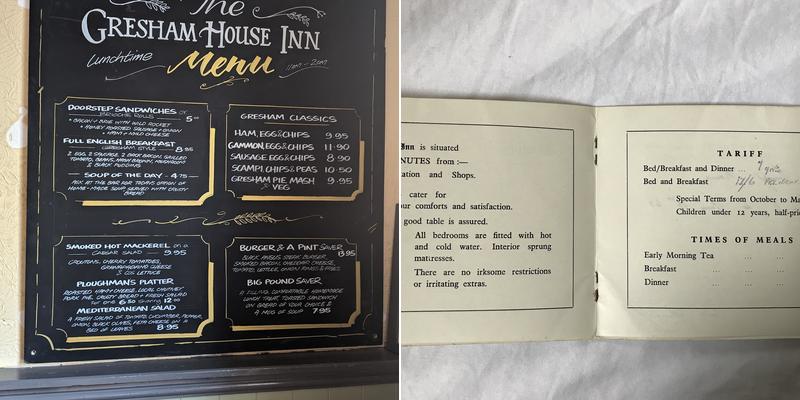 The
GRESHAM HOUSE INN
Lunchtime
Menu
DOORSTEP SANDWICHES or
BRIOCHE ROLLS
5.00
• BACON & BRIE WITH WILD ROCKET
• HONEY ROASTED SAUSAGE & ONION
• HAM & MILD CHEESE
FULL ENGLISH BREAKFAST
GRESHAM STYLE 8.95
2 EGG, 2 SAUSAGE, 2 BACK BACON, GRILLED
TOMATO, BEANS, HASH BROWN, MUSHROOMS
& BLACK PUDDING
SOUP OF THE DAY 4.75
ASK AT THE BAR FOR TODAYS OPTION OF
HOME-MADE SOUP SERVED WITH CRUSTY
BREAD
GRESHAM CLASSICS
HAM, EGG & CHIPS 9.95
GAMMON, EGG & CHIPS 11.90
SAUSAGE, EGG & CHIPS 8.90
SCAMPI, CHIPS & PEAS 10.50
GRESHAM PIE MASH & VEG 9.95
SMOKED HOT MACKEREL on a
CAESAR SALAD 9.95
CROUTONS, CHERRY TOMATOES,
GRANAPADANO CHEESE
& COS LETTUCE
PLOUGHMAN'S PLATTER
ROASTED HAM, CHEESE, LOCAL CHUTNEY
PORK PIE, CRUSTY BREAD & FRESH SALAD
for one 6.50 sharing 12.00
MEDITERRANEAN SALAD
A FRESH SALAD OF TOMATO, CUCUMBER, PEPPER,
ONION, BLACK OLIVES, FETA CHEESE ON A
BED OF LEAVES 8.95
BURGER & A PINT SAVER
13.95
BLACK ANGUS STEAK BURGER,
SMOKED BACON, CHEDDAR CHEESE,
TOMATO, LETTUCE, ONION RINGS & FRIES
BIG POUND SAVER
A FILLING COMFORTABLE HOMEMADE
LUNCH TREAT, TOASTED SANDWICH
ON BREAD OF YOUR CHOICE &
A MUG OF SOUP 7.95
Inn is situated
NUTES from :—
ation and Shops.
cater for
ur comforts and satisfaction.
good table is assured.
All bedrooms are fitted with hot
and cold water. Interior sprung
mattresses.
There are no irksome restrictions
or irritating extras.
TARIFF
Bed/Breakfast and Dinner ... 7 gns
Bed and Breakfast 12/6
Special Terms from October to Ma
Children under 12 years, half-pri
TIMES OF MEALS
Early Morning Tea ... ...
Breakfast ... ... ...
Dinner ... ... ...